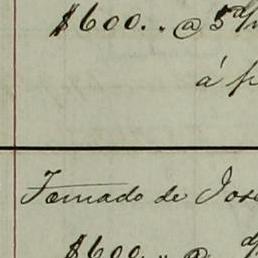 $600.. @ 5 d/
á f
Tomado de José
$600.. @ d/